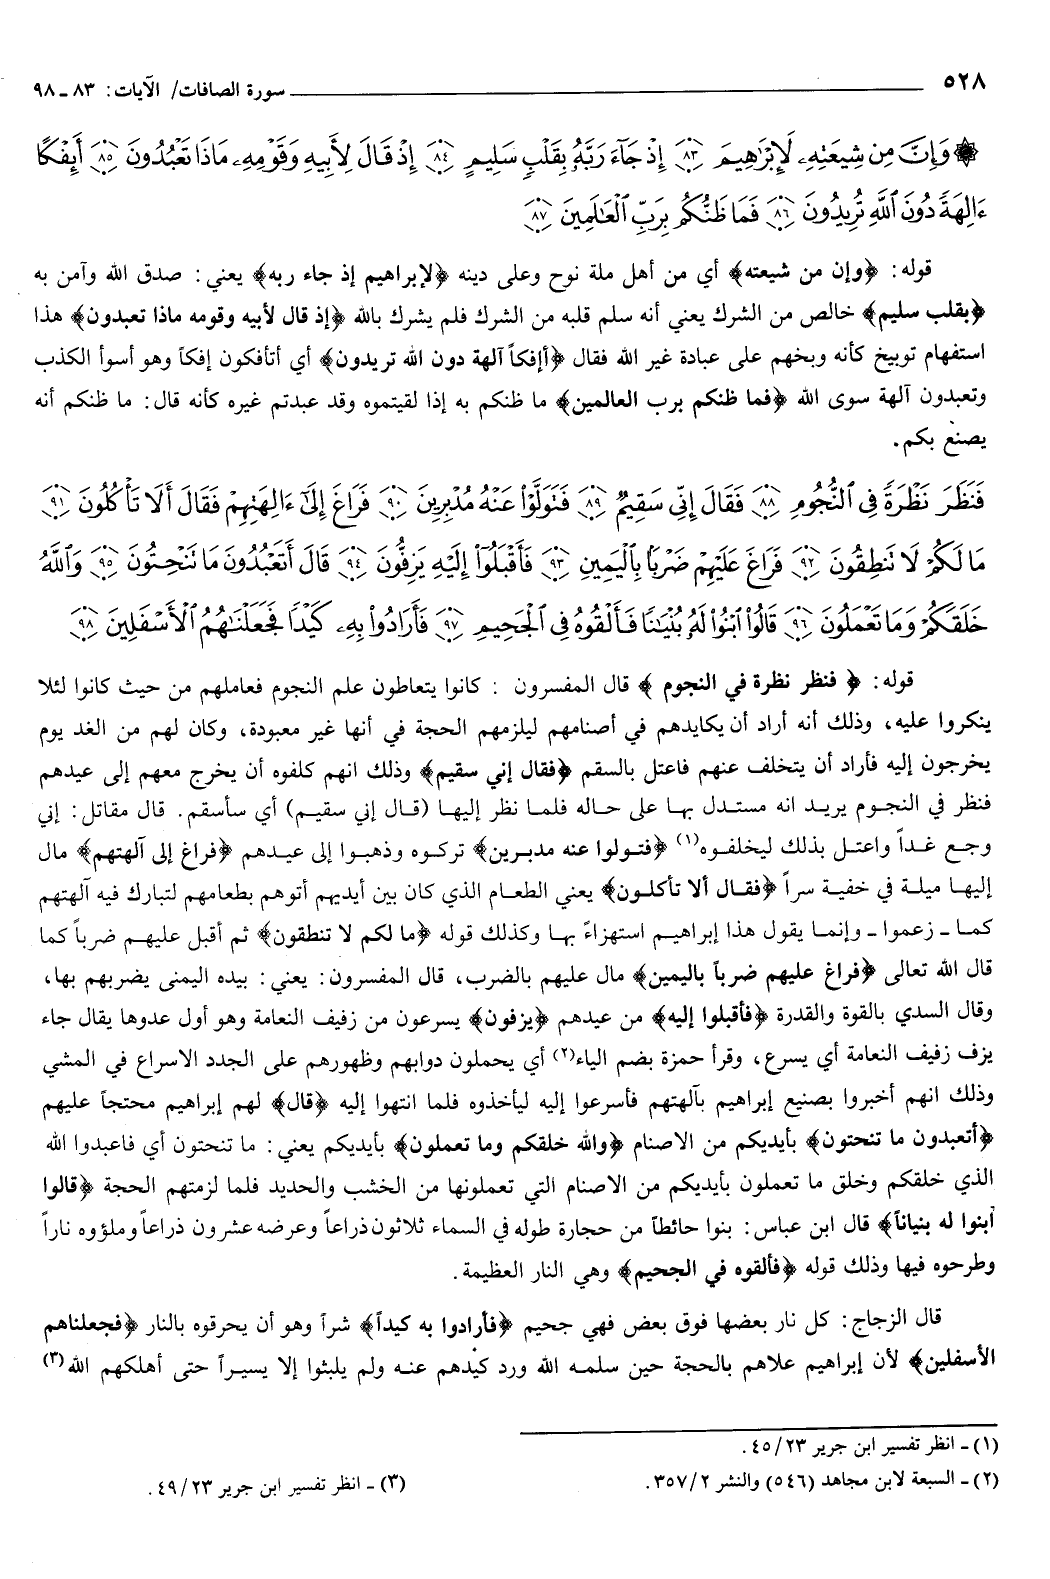 ٥٢٨ سورة الصافات/ الآيات: ٨٣ ـ ٩٨
۞ وَإِنَّ مِن شِيعَتِهِۦ لَإِبْرَٰهِيمَ ٨٣ إِذْ جَآءَ رَبَّهُۥ بِقَلْبٍ سَلِيمٍ ٨٤ إِذْ قَالَ لِأَبِيهِ وَقَوْمِهِۦ مَاذَا تَعْبُدُونَ ٨٥ أَئِفْكًا
ءَالِهَةً دُونَ ٱللَّهِ تُرِيدُونَ ٨٦ فَمَا ظَنُّكُم بِرَبِّ ٱلْعَٰلَمِينَ ٨٧
قوله: ﴿وإن من شيعته﴾ أي من أهل ملة نوح وعلى دينه ﴿لإبراهيم إذ جاء ربه﴾ يعني: صدق الله وآمن به
﴿بقلب سليم﴾ خالص من الشرك يعني أنه سلم قلبه من الشرك فلم يشرك بالله ﴿إذ قال لأبيه وقومه ماذا تعبدون﴾ هذا
استفهام توبيخ كأنه وبخهم على عبادة غير الله فقال ﴿أإفكاً آلهة دون الله تريدون﴾ أي أتأفكون إفكاً وهو أسوأ الكذب
وتعبدون آلهة سوى الله ﴿فما ظنكم برب العالمين﴾ ما ظنكم به إذا لقيتموه وقد عبدتم غيره كأنه قال: ما ظنكم أنه
يصنع بكم.
فَنَظَرَ نَظْرَةً فِى ٱلنُّجُومِ ٨٨ فَقَالَ إِنِّى سَقِيمٌ ٨٩ فَتَوَلَّوْا۟ عَنْهُ مُدْبِرِينَ ٩٠ فَرَاغَ إِلَىٰٓ ءَالِهَتِهِمْ فَقَالَ أَلَا تَأْكُلُونَ ٩١
مَا لَكُمْ لَا تَنطِقُونَ ٩٢ فَرَاغَ عَلَيْهِمْ ضَرْبًۢا بِٱلْيَمِينِ ٩٣ فَأَقْبَلُوٓا۟ إِلَيْهِ يَزِفُّونَ ٩٤ قَالَ أَتَعْبُدُونَ مَا تَنْحِتُونَ ٩٥ وَٱللَّهُ
خَلَقَكُمْ وَمَا تَعْمَلُونَ ٩٦ قَالُوا۟ ٱبْنُوا۟ لَهُۥ بُنْيَٰنًا فَأَلْقُوهُ فِى ٱلْجَحِيمِ ٩٧ فَأَرَادُوا۟ بِهِۦ كَيْدًا فَجَعَلْنَٰهُمُ ٱلْأَسْفَلِينَ ٩٨
قوله: ﴿ فنظر نظرة في النجوم ﴾ قال المفسرون : كانوا يتعاطون علم النجوم فعاملهم من حيث كانوا لئلا
ينكروا عليه، وذلك أنه أراد أن يكايدهم في أصنامهم ليلزمهم الحجة في أنها غير معبودة، وكان لهم من الغد يوم
يخرجون إليه فأراد أن يتخلف عنهم فاعتل بالسقم ﴿فقال إني سقيم﴾ وذلك انهم كلفوه أن يخرج معهم إلى عيدهم
فنظر في النجوم يريد انه مستدل بها على حاله فلما نظر إليها (قال إني سقيم) أي سأسقم. قال مقاتل: إني
وجع غداً واعتل بذلك ليخلفوه(١) ﴿فتولوا عنه مدبرين﴾ تركوه وذهبوا إلى عيدهم ﴿فراغ إلى آلهتهم﴾ مال
إليها ميلة في خفية سراً ﴿فقال ألا تأكلون﴾ يعني الطعام الذي كان بين أيديهم أتوهم بطعامهم لتبارك فيه آلهتهم
كما ـ زعموا ـ وإنما يقول هذا إبراهيم استهزاءً بها وكذلك قوله ﴿ما لكم لا تنطقون﴾ ثم أقبل عليهم ضرباً كما
قال الله تعالى ﴿فراغ عليهم ضرباً باليمين﴾ مال عليهم بالضرب، قال المفسرون: يعني: بيده اليمنى يضربهم بها،
وقال السدي بالقوة والقدرة ﴿فأقبلوا إليه﴾ من عيدهم ﴿يزفون﴾ يسرعون من زفيف النعامة وهو أول عدوها يقال جاء
يزف زفيف النعامة أي يسرع، وقرأ حمزة بضم الياء(٢) أي يحملون دوابهم وظهورهم على الجدد الاسراع في المشي
وذلك انهم أخبروا بصنيع إبراهيم بآلهتهم فأسرعوا إليه ليأخذوه فلما انتهوا إليه ﴿قال﴾ لهم إبراهيم محتجاً عليهم
﴿أتعبدون ما تنحتون﴾ بأيديكم من الاصنام ﴿والله خلقكم وما تعملون﴾ بأيديكم يعني: ما تنحتون أي فاعبدوا الله
الذي خلقكم وخلق ما تعملون بأيديكم من الاصنام التي تعملونها من الخشب والحديد فلما لزمتهم الحجة ﴿قالوا
أبنوا له بنياناً﴾ قال ابن عباس: بنوا حائطاً من حجارة طوله في السماء ثلاثون ذراعاً وعرضه عشرون ذراعاً وملؤوه ناراً
وطرحوه فيها وذلك قوله ﴿فألقوه في الجحيم﴾ وهي النار العظيمة.
قال الزجاج: كل نار بعضها فوق بعض فهي جحيم ﴿فأرادوا به كيداً﴾ شراً وهو أن يحرقوه بالنار ﴿فجعلناهم
الأسفلين﴾ لأن إبراهيم علاهم بالحجة حين سلمه الله ورد كيدهم عنه ولم يلبثوا إلا يسيراً حتى أهلكهم الله(٣)
(١) ـ انظر تفسير ابن جرير ٢٣/ ٤٥.
(٢) ـ السبعة لابن مجاهد (٥٤٦) والنشر ٢/ ٣٥٧. (٣) ـ انظر تفسير ابن جرير ٢٣/ ٤٩.